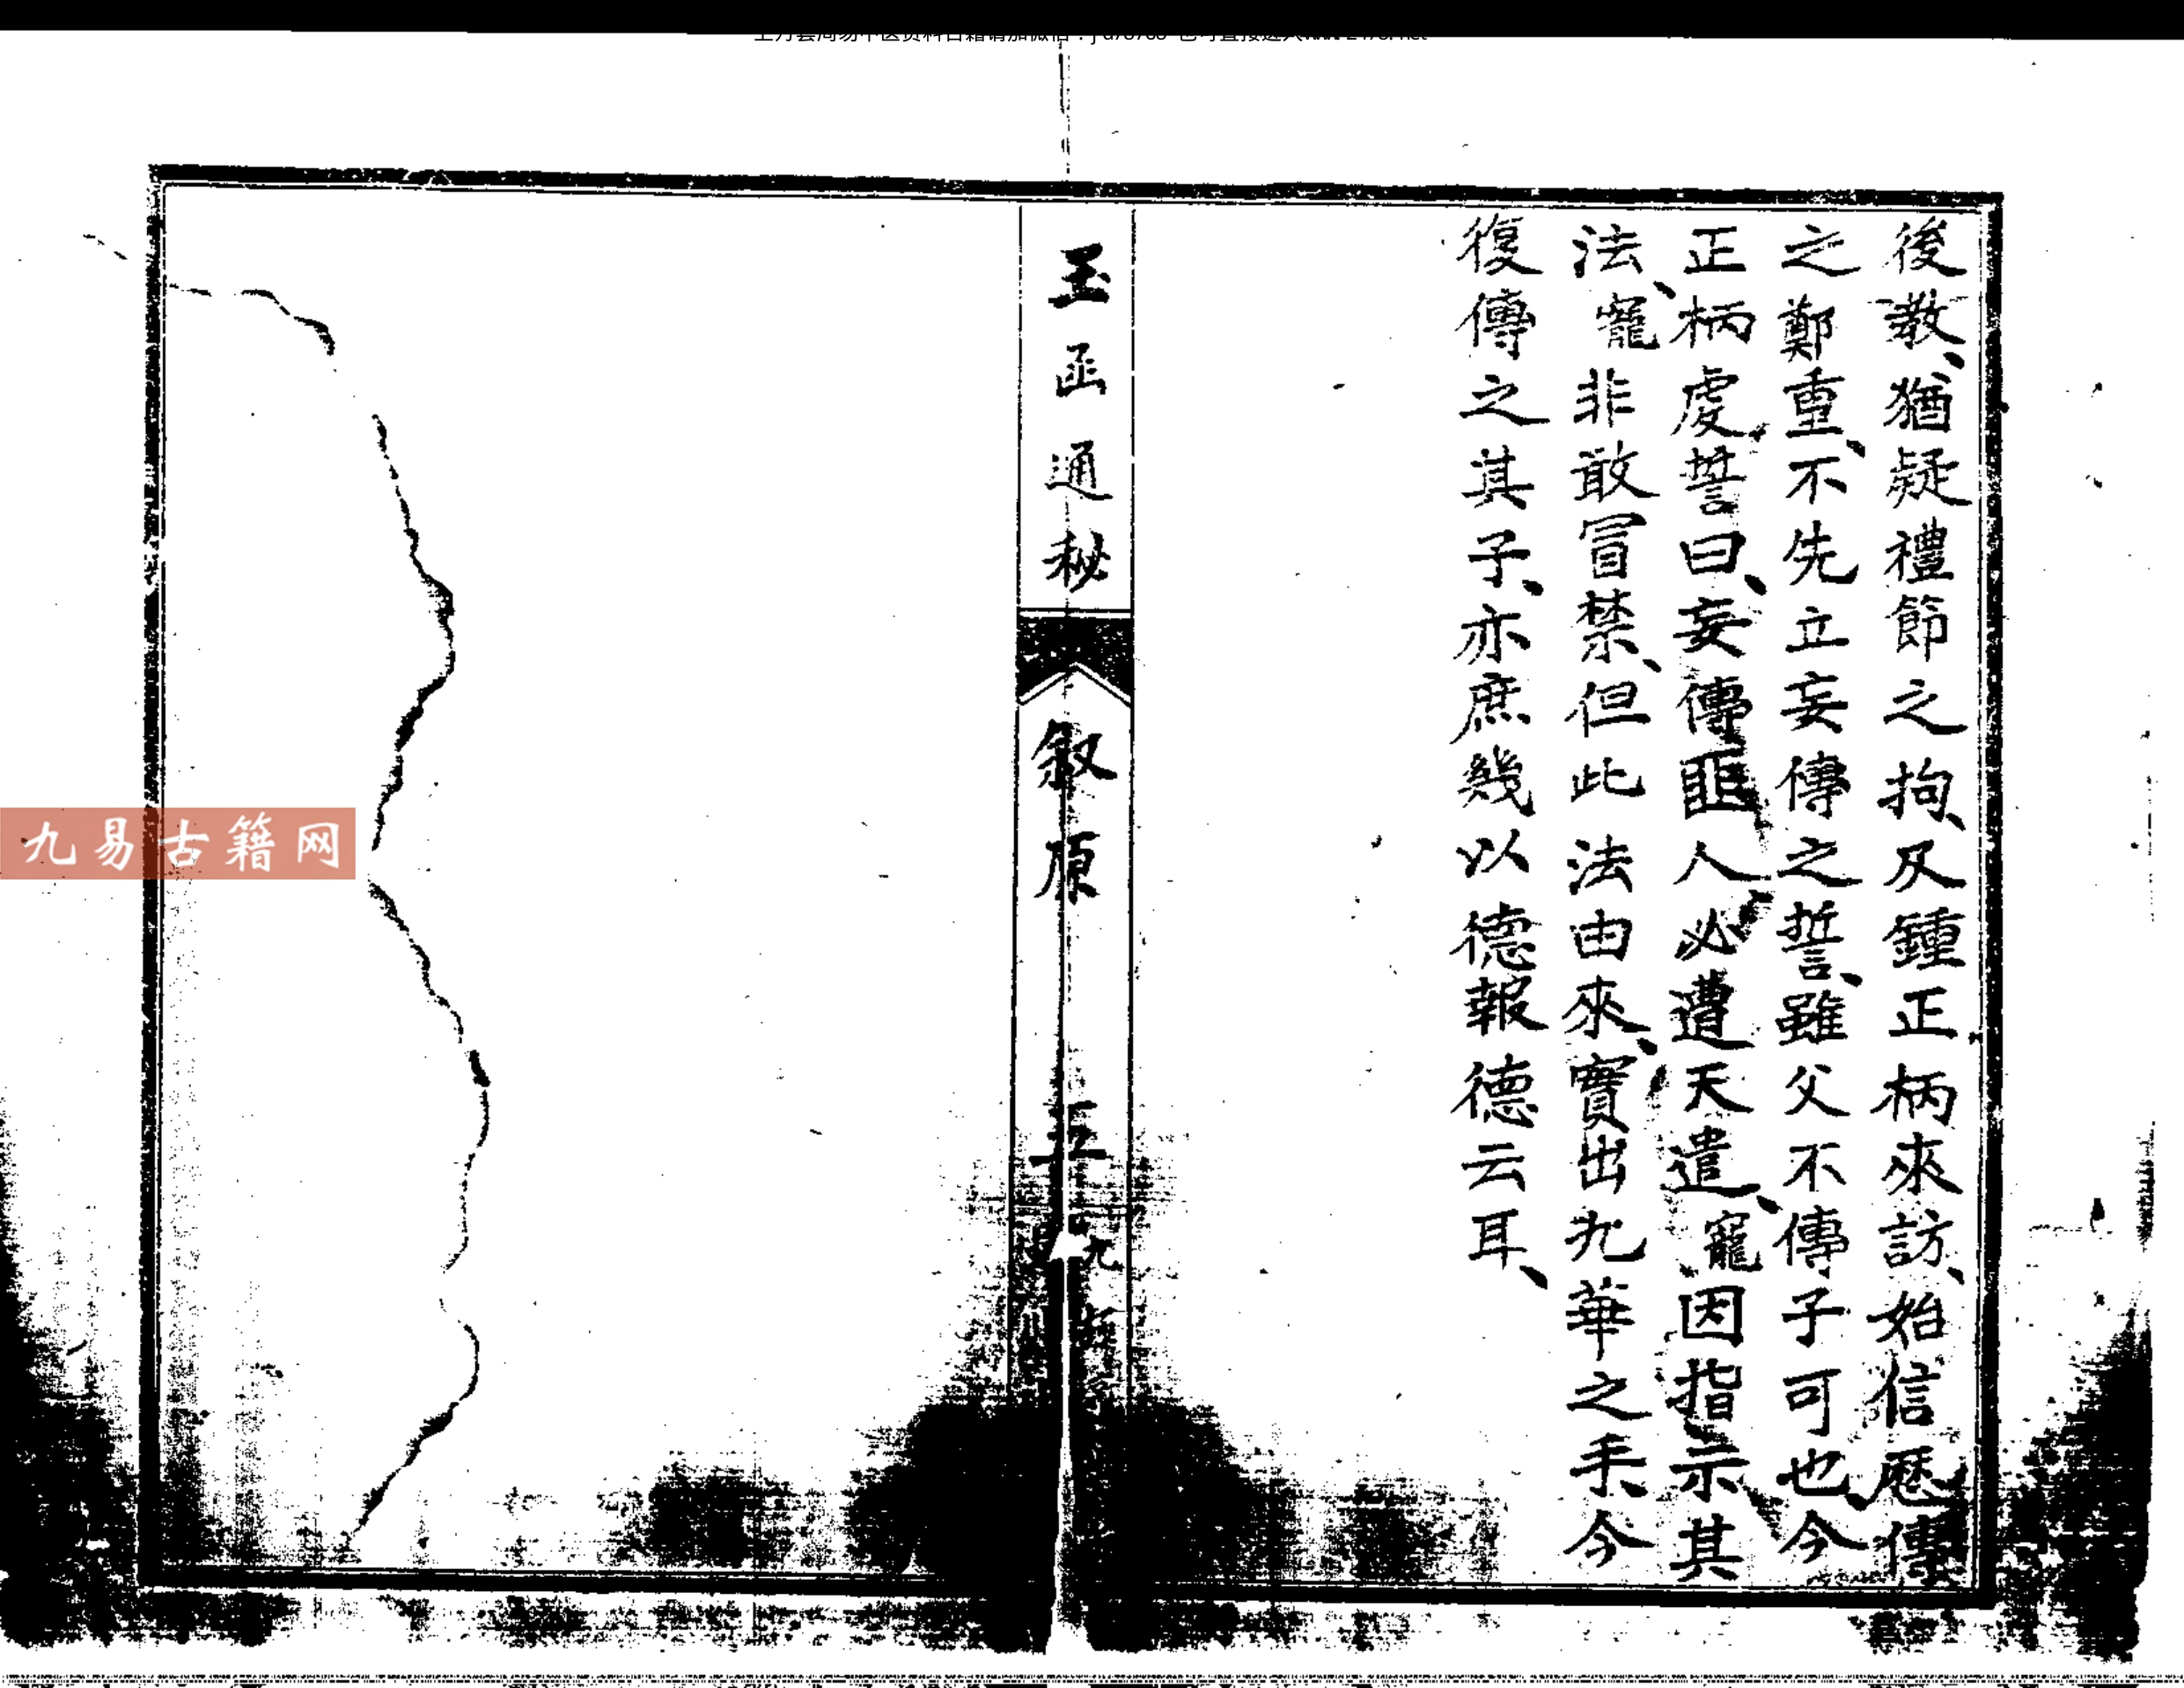 後教、猶疑禮節之拘、及鍾正柄來訪、始信歷傳
之鄭重、不先立妄傳之誓、雖父不傳子可也、今
正柄處誓曰、妄傳匪人、必遭天遣、寵因指示其
法、寵非敢冒禁、但此法由來、實出九華之手、今
復傳之其子、亦庶幾以德報德云耳、
玉函通秘
叙原
五
九易古籍网